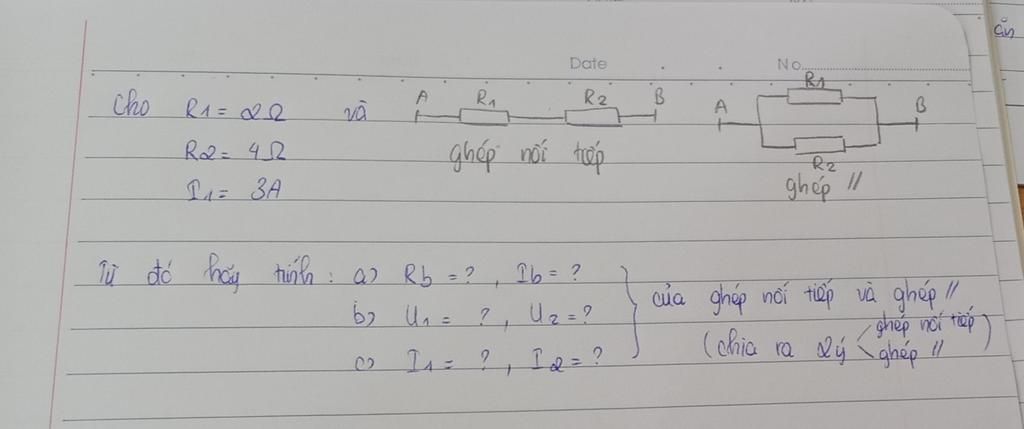 Date
No
ẩn
Cho R1 = 2Ω và
R2 = 4Ω
I1 = 3A
A R1 R2 B
ghép nối tiếp
R1
A B
R2
ghép //
Từ đó hãy tính: a) Rb = ?, Ib = ?
b) U1 = ?, U2 = ?
c) I1 = ?, I2 = ?
của ghép nối tiếp và ghép //
(chia ra 2 ý < ghép nối tiếp
ghép // )